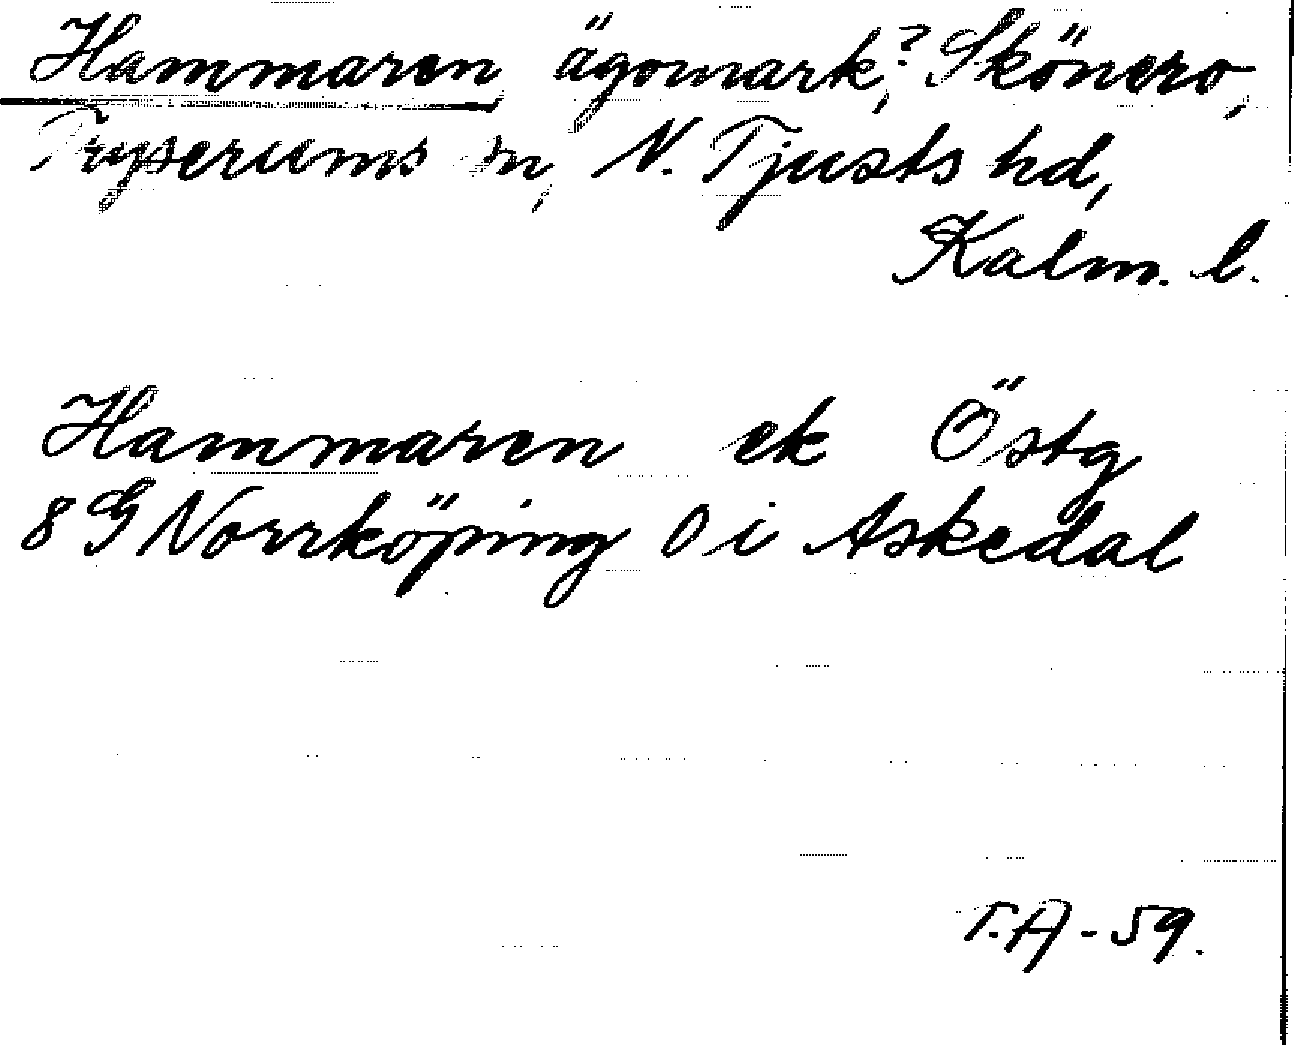 Hammaren ägomark,? Skönero,
Tryserums sn, N. Tjusts hd,
Kalm. l.
Hammaren ek Östg
8 G Norrköping O i Askedal
T.A - 59.